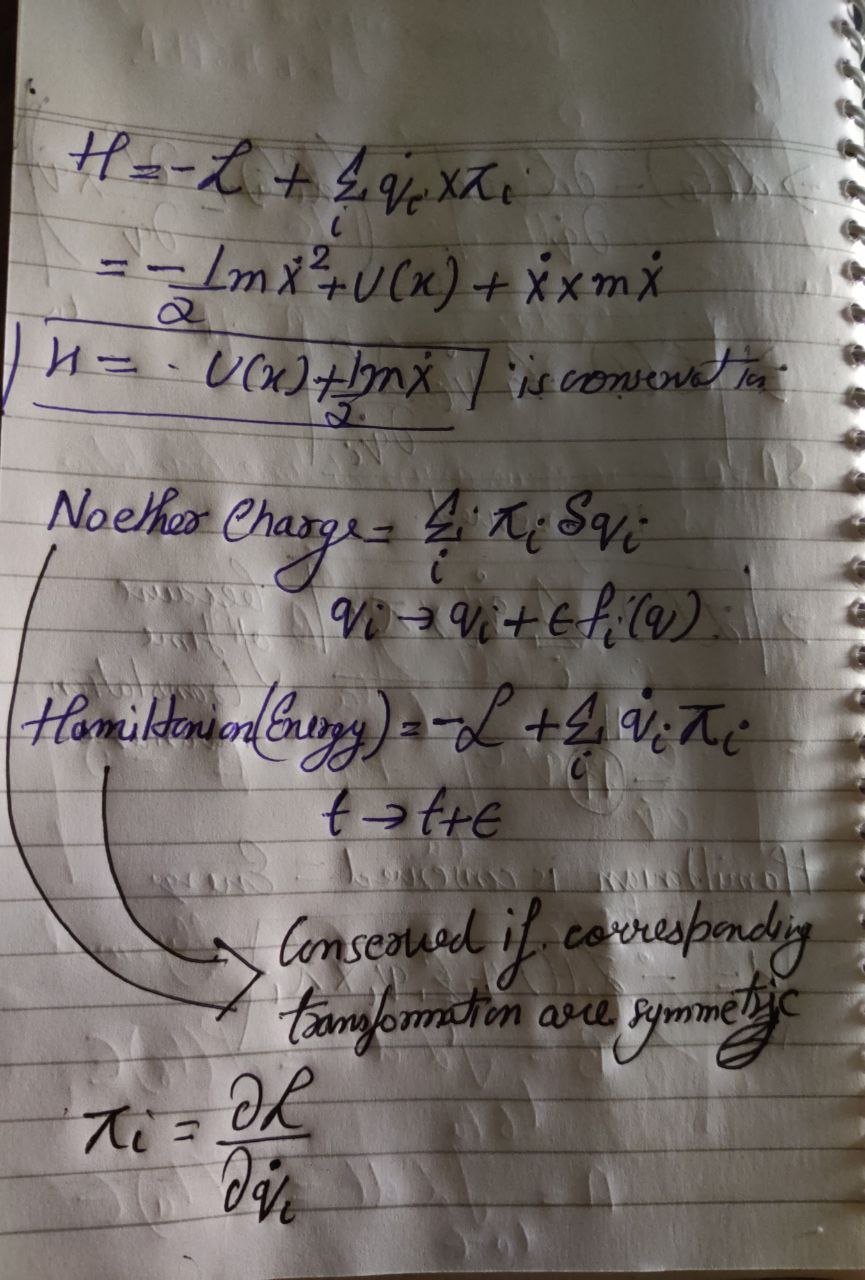 H = -ℒ + Σ_i q̇_i × π_i
= -1/2 mẋ² + U(x) + ẋ × mẋ
H = U(x) + 1/2 mẋ is
Noether Charge = Σ_i π_i δq_i
q_i → q_i + ϵ f_i(q)
Hamiltonian (Energy) = -ℒ + Σ_i q̇_i π_i
t → t + ϵ
Conserved if corresponding
transformation are symmetric
π_i = ∂ℒ/∂q̇_i